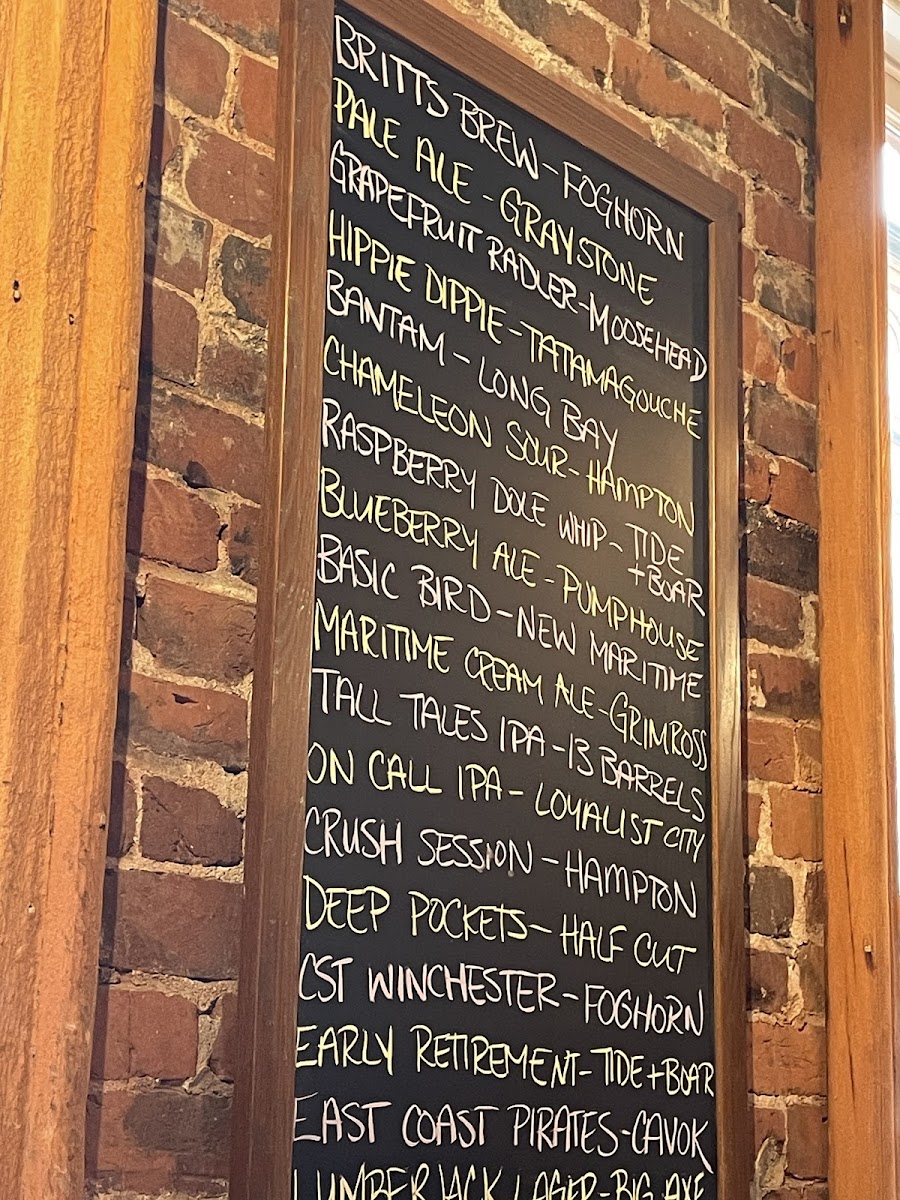 BRITTS BREW - FOGHORN
PALE ALE - GRAYSTONE
GRAPEFRUIT RADLER - MOOSEHEAD
HIPPIE DIPPIE - TATAMAGOUCHE
BANTAM - LONG BAY
CHAMELEON SOUR - HAMPTON
RASPBERRY DOLE WHIP - TIDE
+ BOAR
BLUEBERRY ALE - PUMPHOUSE
BASIC BIRD - NEW MARITIME
MARITIME CREAM ALE - GRIMROSS
TALL TALES IPA - 13 BARRELS
ON CALL IPA - LOYALIST CITY
CRUSH SESSION - HAMPTON
DEEP POCKETS - HALF CUT
CST WINCHESTER - FOGHORN
EARLY RETIREMENT - TIDE + BOAR
EAST COAST PIRATES - CAVOK
LUMBERJACK LAGER - BIG AXE